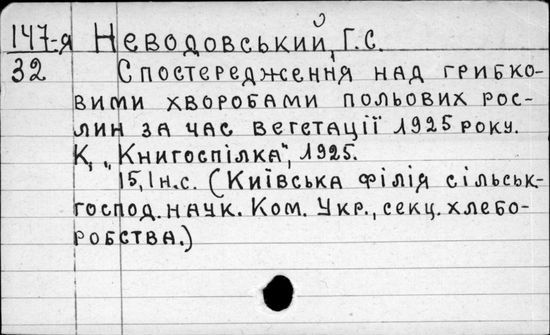 147-я Неводовський, Г.С.
32 Спостередження над грибко-
вими хворобами польових рос-
лин за час вегетації 1925 року.
К, „Книгоспілка", 1925.
15, 1 н.с. (Київська філія сільськ.
господ. наук. Ком. Укр., секц. хлебо-
робства.)